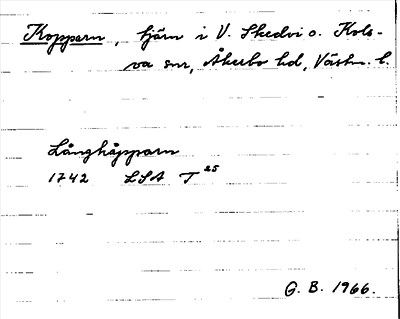 Kopparn, tjärn i V. Skedvi o. Kols-
va snr, Åkerbo hd, Västm. l.
Långkåpparn
1742 LSA T 25
G. B. 1966.